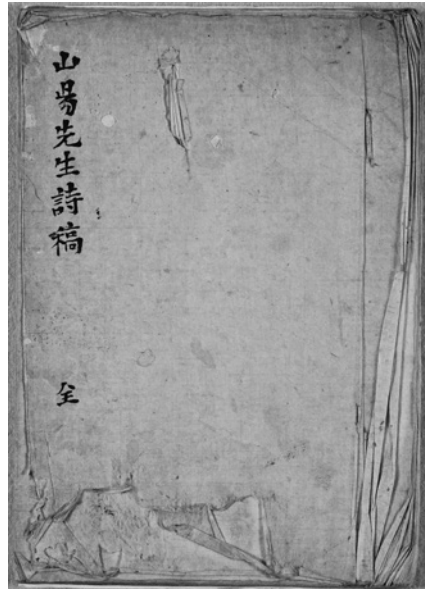 山昜先生詩稿 全